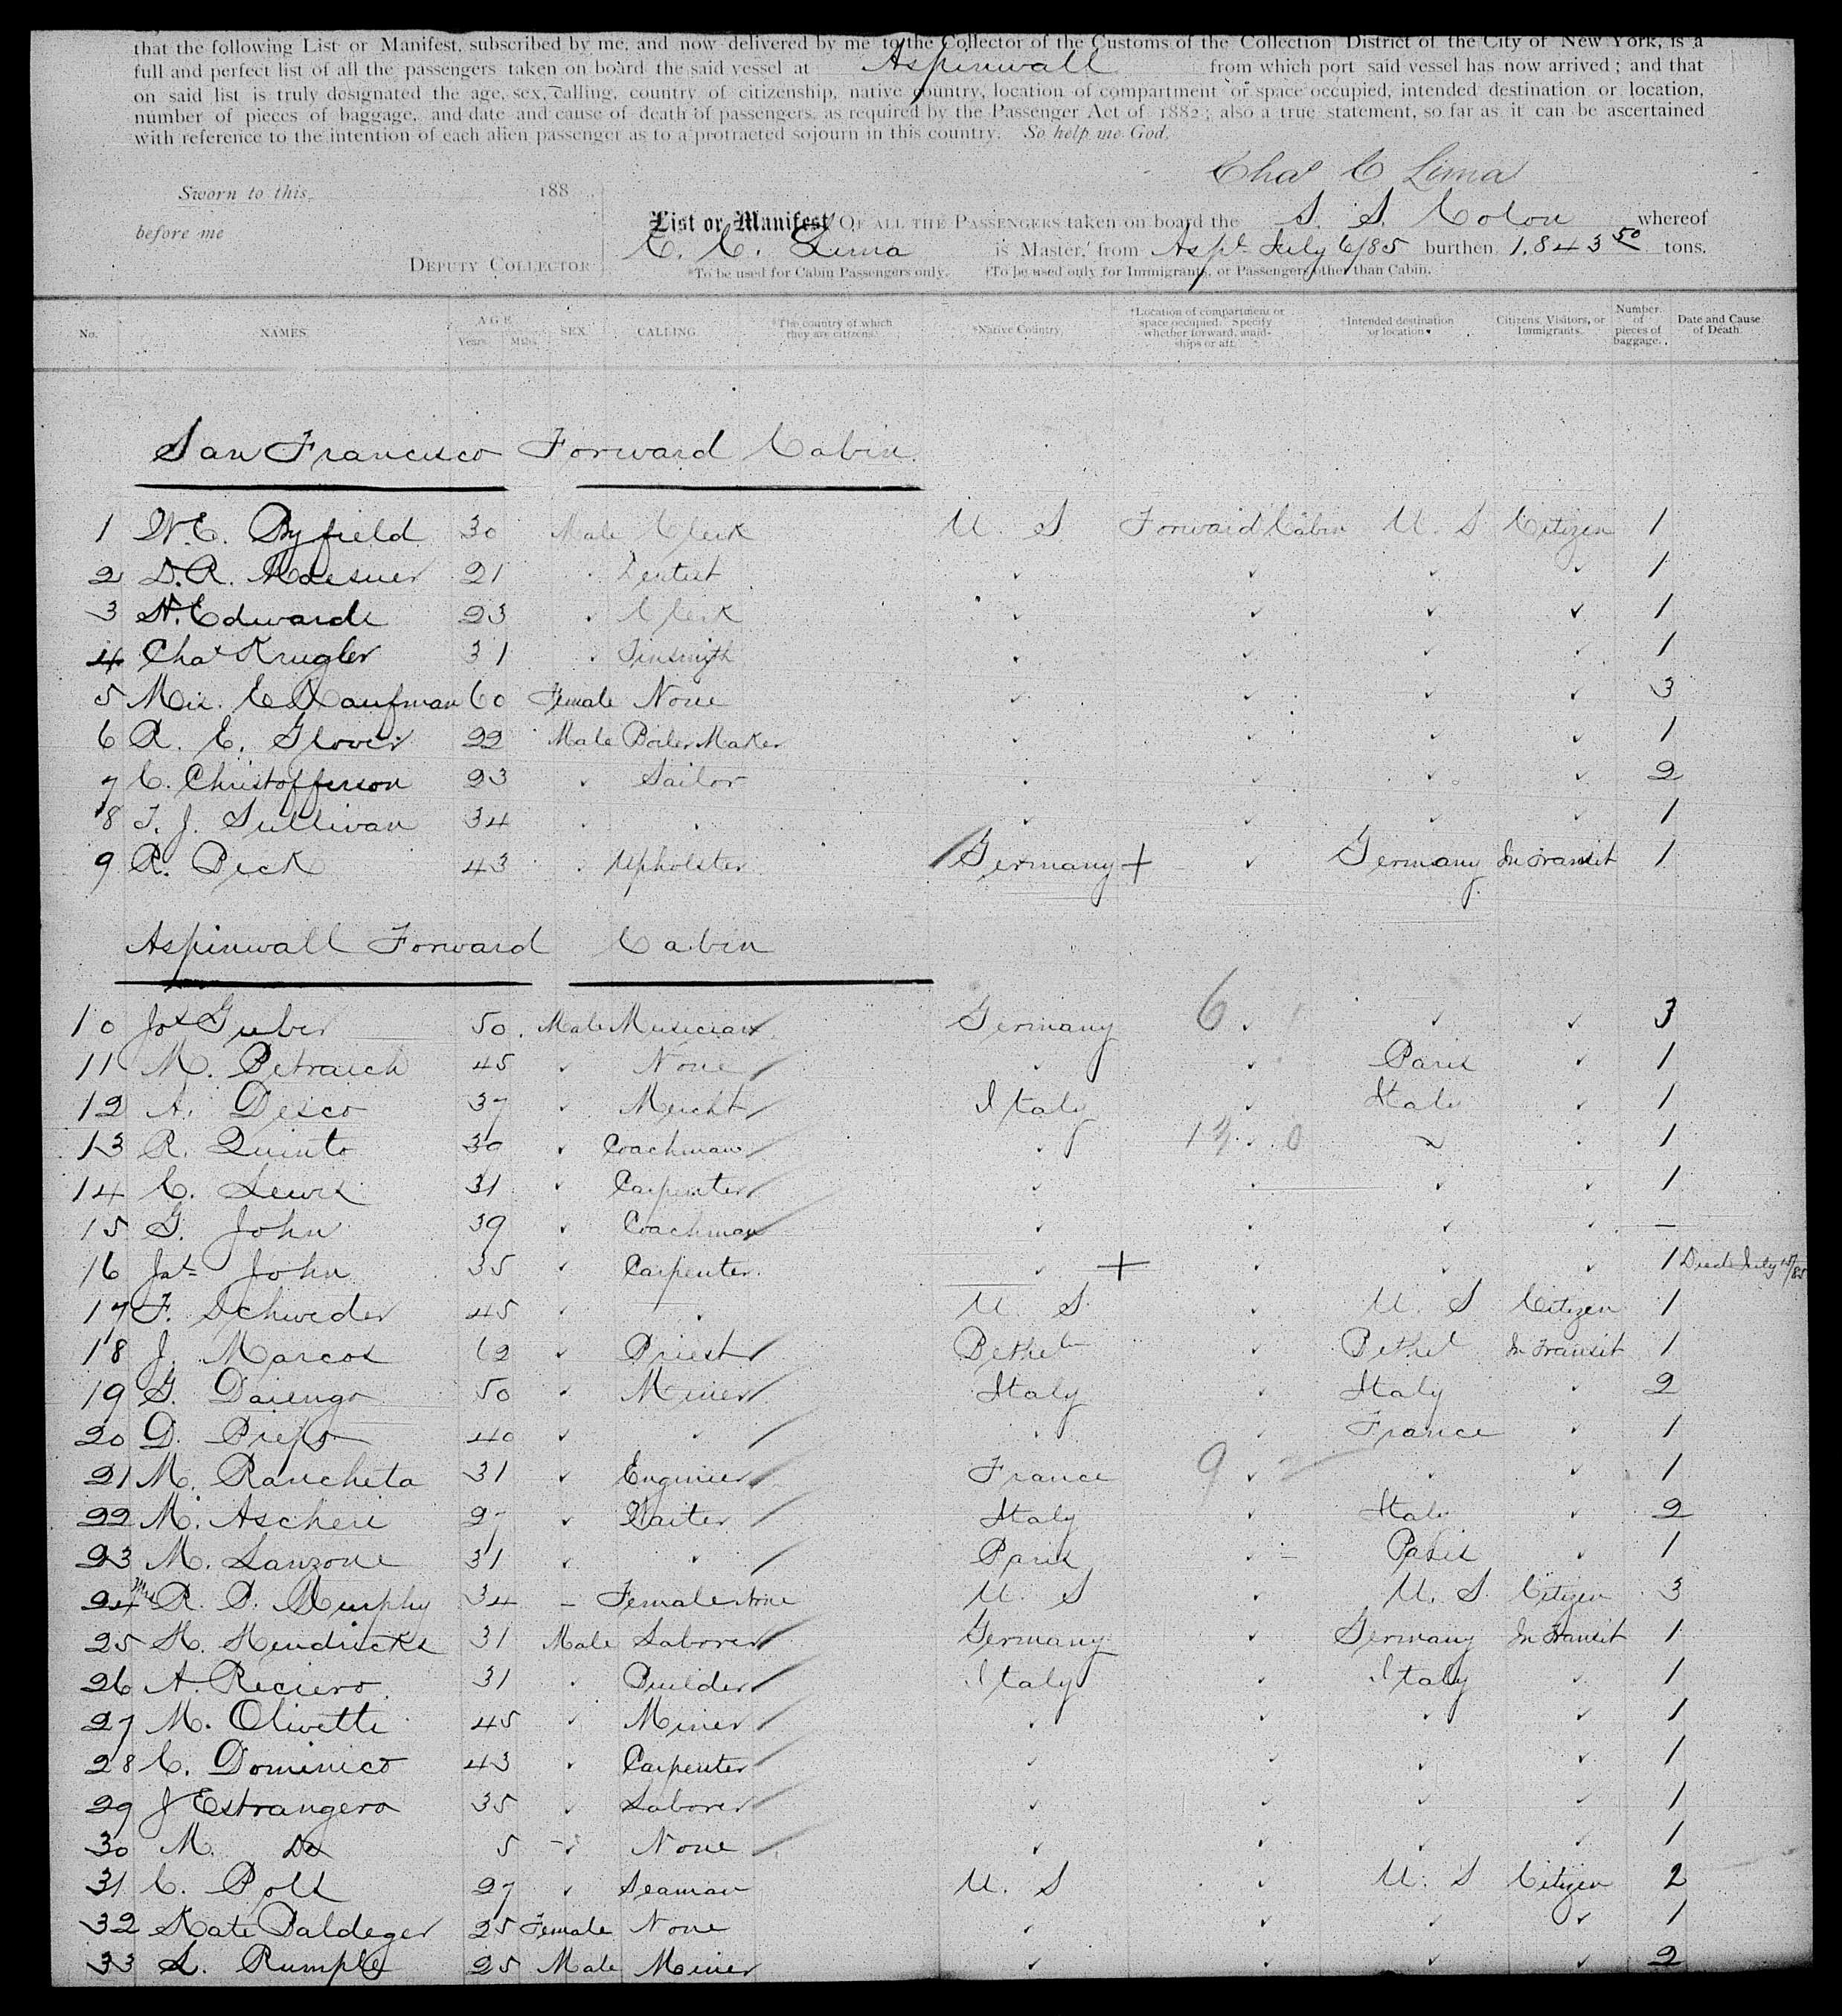 that the following List or Manifest, subscribed by me, and now delivered by me to the Collector of the Customs of the Collection District of the City of New York, is a
full and perfect list of all the passengers taken on board the said vessel at Aspinwall from which port said vessel has now arrived; and that
on said list is truly designated the age, sex, calling, country of citizenship, native country, location of compartment or space occupied, intended destination or location,
number of pieces of baggage, and date and cause of death of passengers, as required by the Passenger Act of 1882; also a true statement, so far as it can be ascertained
with reference to the intention of each alien passenger as to a protracted sojourn in this country. So help me God.
Chas C Lima
Sworn to this 188
before me
DEPUTY COLLECTOR
List or Manifest OF ALL THE PASSENGERS taken on board the S. S. Colon whereof
C. C. Lima is Master, from Aspl July 6/85 burthen 1.843 50 tons.
*To be used for Cabin Passengers only. †To be used only for Immigrants, or Passengers other than Cabin.
No. NAMES. AGE Years. Mths. SEX. CALLING. *The country of which they are citizens. *Native Country. †Location of compartment or space occupied. Specify whether forward, amidships or aft. *Intended destination or location. Citizens, Visitors, or Immigrants. Number of pieces of baggage. Date and Cause of Death.
San Francisco Forward Cabin
1 W.C. Byfield 30 Male Clerk U. S Forward Cabin U. S Citizen 1
2 D.R. 21 ✓ Dentist ✓ ✓ ✓ ✓ 1
3 N. Edwards 23 ✓ Clerk ✓ ✓ ✓ ✓ 1
4 Chas Krugler 31 ✓ Tinsmith ✓ ✓ ✓ ✓ 1
5 E Kaufman 60 Female None ✓ ✓ ✓ ✓ 3
6 R. E. Glover 22 Male Boiler Maker ✓ ✓ ✓ ✓ 1
7 C. Christofferson 23 ✓ Sailor ✓ ✓ ✓ ✓ 2
8 T. J. Sullivan 34 ✓ ✓ ✓ ✓ ✓ ✓ 1
9 R. Beck 43 ✓ Upholster Germany + ✓ Germany In Transit 1
Aspinwall Forward Cabin
10 Jos Guber 50 Male Musician Germany 6 ✓ ✓ ✓ 3
11 M. Petraich 45 ✓ None ✓ ✓ Paris ✓ 1
12 A. Desco 37 ✓ Mercht Italy ✓ Italy ✓ 1
13 R. Quinto 30 ✓ Coachman ✓ 13 ✓ 0 ✓ ✓ 1
14 C. Lewis 31 ✓ Carpenter ✓ ✓ ✓ ✓ 1
15 G. John 39 ✓ Coachman ✓ ✓ ✓ ✓ —
16 Jas John 35 ✓ Carpenter ✓ + ✓ ✓ ✓ 1 Died July 15/85
17 F. Schweder 45 ✓ ✓ U. S. ✓ U. S Citizen 1
18 J. Marcos 62 ✓ Priest Bethelm ✓ Bethel In Transit 1
19 G. Daiengo 50 ✓ Miner Italy ✓ Italy ✓ 2
20 D. 40 ✓ ✓ ✓ ✓ France ✓ 1
21 M. Rancheta 31 ✓ Engineer France 9 ✓ ✓ ✓ 1
22 M. Ascheri 27 ✓ Waiter Italy ✓ Italy ✓ 2
23 M. Lanzone 31 ✓ ✓ Paris ✓ Paris ✓ 1
24 Mrs R. P. Murphy 34 – Female None U. S ✓ U. S. Citizen 3
25 H. Hendricks 31 Male Laborer Germany ✓ Germany In Transit 1
26 A. Reciero 31 ✓ Builder Italy ✓ Italy ✓ 1
27 M. Olivetti 45 ✓ Miner ✓ ✓ ✓ ✓ 1
28 C. Dominico 43 ✓ Carpenter ✓ ✓ ✓ ✓ 1
29 J Estrangero 35 ✓ Laborer ✓ ✓ ✓ ✓ 1
30 M. Do 5 – ✓ None ✓ ✓ ✓ ✓ 1
31 C. Polk 27 ✓ Seaman U. S ✓ U. S Citizen 2
32 Kate Paldeger 25 Female None ✓ ✓ ✓ ✓ 1
33 L. Rumple 25 Male Miner ✓ ✓ ✓ ✓ 2